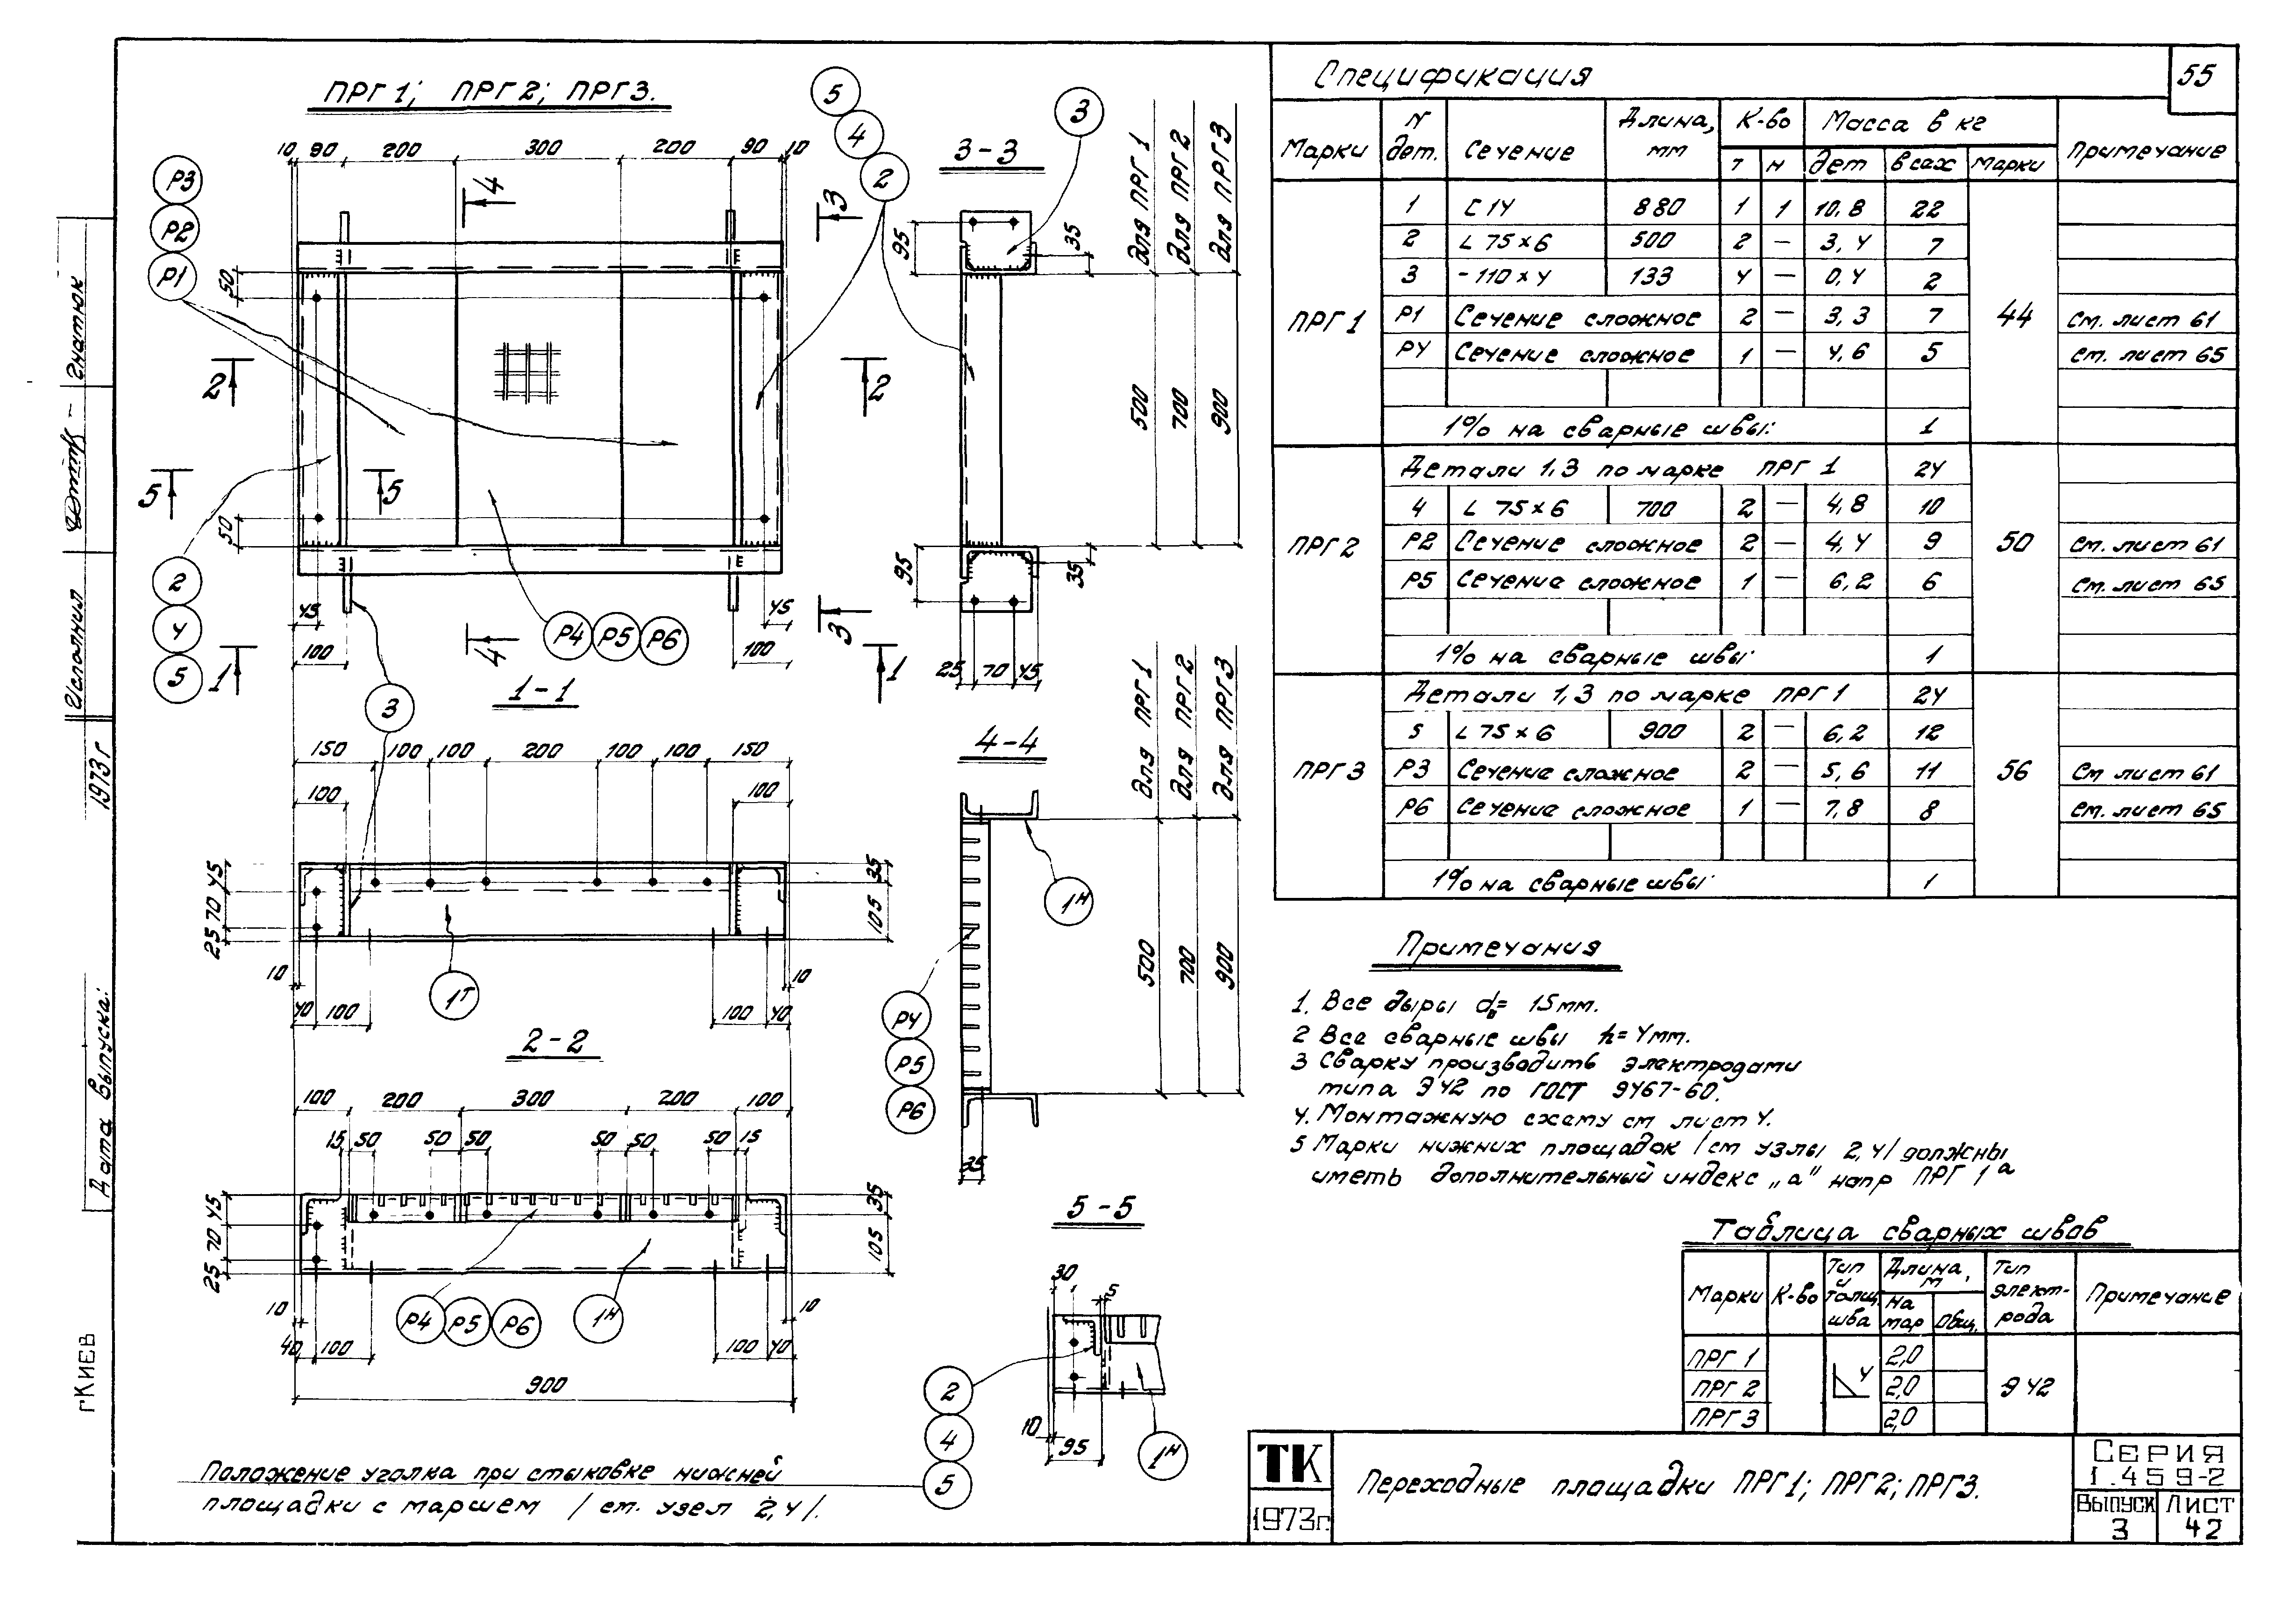 55
ПРГ1; ПРГ2; ПРГ3.
10 90 200 300 200 90 10
Р3
Р2
Р1
5
4
2
4
3
50
50
2
2
5
5
2
4
5
45
100
3
Р4 Р5 Р6
4
3
45
100
1
1
3-3
3
95
35
95
35
25 70 45
для ПРГ1
для ПРГ2
для ПРГ3
500
700
900
1-1
150 100 100 200 100 100 150
100
100
45
70
25
35
105
10
10
40 100
100 40
1т
2-2
100 200 300 200 100
15 50 50 50 50 50 50 15
45
70
25
35
105
10
10
40 100
100 40
900
Р4 Р5 Р6
1н
4-4
для ПРГ1
для ПРГ2
для ПРГ3
1н
500
700
900
Р4
Р5
Р6
35
5-5
30
5
10
95
2
4
5
1н
Положение уголка при стыковке нижней
площадки с маршем /см. узел 2,4/.
Спецификация
Марки N дет. Сечение Длина, мм К-во Масса в кг Примечание
т н дет всех марки
ПРГ1 44
1 С14 880 1 1 10,8 22
2 L 75×6 500 2 — 3,4 7
3 - 110×4 133 4 — 0,4 2
Р1 Сечение сложное 2 — 3,3 7 См. лист 61
Р4 Сечение сложное 1 — 4,6 5 См. лист 65
1% на сварные швы: 1
ПРГ2 50
Детали 1,3 по марке ПРГ1 24
4 L 75×6 700 2 — 4,8 10
Р2 Сечение сложное 2 — 4,4 9 См. лист 61
Р5 Сечение сложное 1 — 6,2 6 См. лист 65
1% на сварные швы: 1
ПРГ3 56
Детали 1,3 по марке ПРГ1 24
5 L 75×6 900 2 — 6,2 12
Р3 Сечение сложное 2 — 5,6 11 См лист 61
Р6 Сечение сложное 1 — 7,8 8 См. лист 65
1% на сварные швы: 1
Примечания
1. Все дыры d= 15мм.
2 Все сварные швы h=4мм.
3 Сварку производить электродами
типа Э42 по ГОСТ 9467-60.
4. Монтажную схему см лист 4.
5 Марки нижних площадок /см узлы 2,4/ должны
иметь дополнительный индекс „а" напр ПРГ1а
Таблица сварных швов
Марки К-во Тип и толщ. шва Длина, м Тип электрода Примечание
На мар Общ.
ПРГ1 2,0
ПРГ2 4 2,0 Э42
ПРГ3 2,0
ТК
1973г.
Переходные площадки ПРГ1; ПРГ2; ПРГ3.
Серия
1.459-2
Выпуск
3
Лист
42
Исполнил
Гнатюк
1973г
Дата выпуска:
г Киев